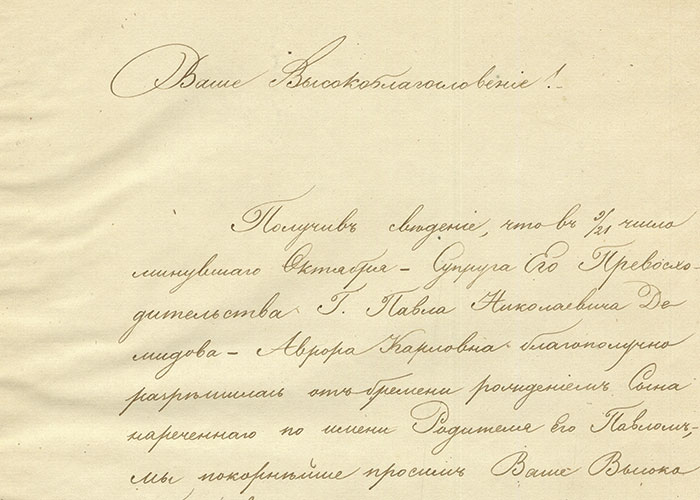 Ваше Высокоблагословеніе!
Получивъ свѣденіе, что въ 9/21 число
минувшаго Октября – Супруга Его Превосхо-
дительства Г. Павла Николаевича Де
мидова – Аврора Карловна благополучно
разрѣшилась отъ бремени рожденіемъ Сына
нареченнаго по имени Родителя Его Павломъ,
мы покорнѣйше просимъ Ваше Высоко